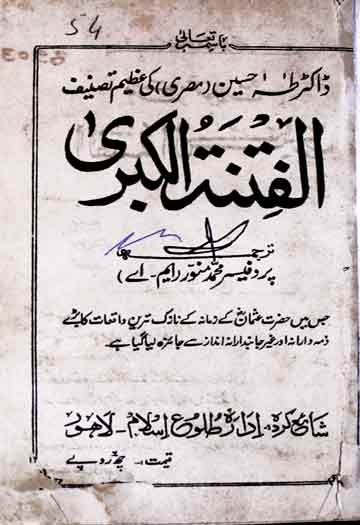 54
باسمہ تعالیٰ
ڈاکٹر طہٰ حسین (مصری) کی عظیم تصنیف
الفتنۃ الکبریٰ
ترجمہ
پروفیسر محمد منور (ایم-اے)
جس میں حضرت عثمانؓ کے زمانہ کے نازک ترین واقعات کا بڑے
ذمہ دارانہ اور غیر جانبدارانہ انداز سے جائزہ لیا گیا ہے۔
شائع کردہ: ادارہ طلوع اسلام - لاہور
قیمت:- چھ روپے